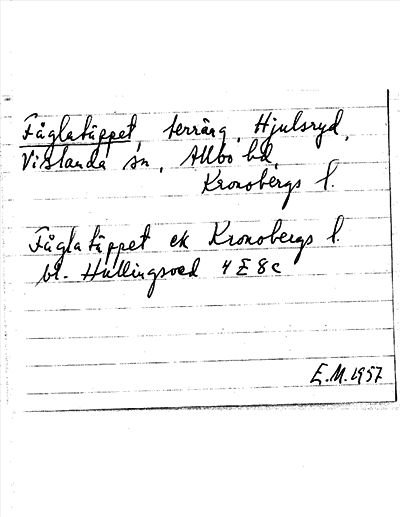 Fåglatäppet, terräng, Hjulsryd,
Vislanda sn, Allbo hd,
Kronobergs l.
Fåglatäppet ek Kronobergs l.
bl. Hullingsved 4 E 8 c
E.M. 1957